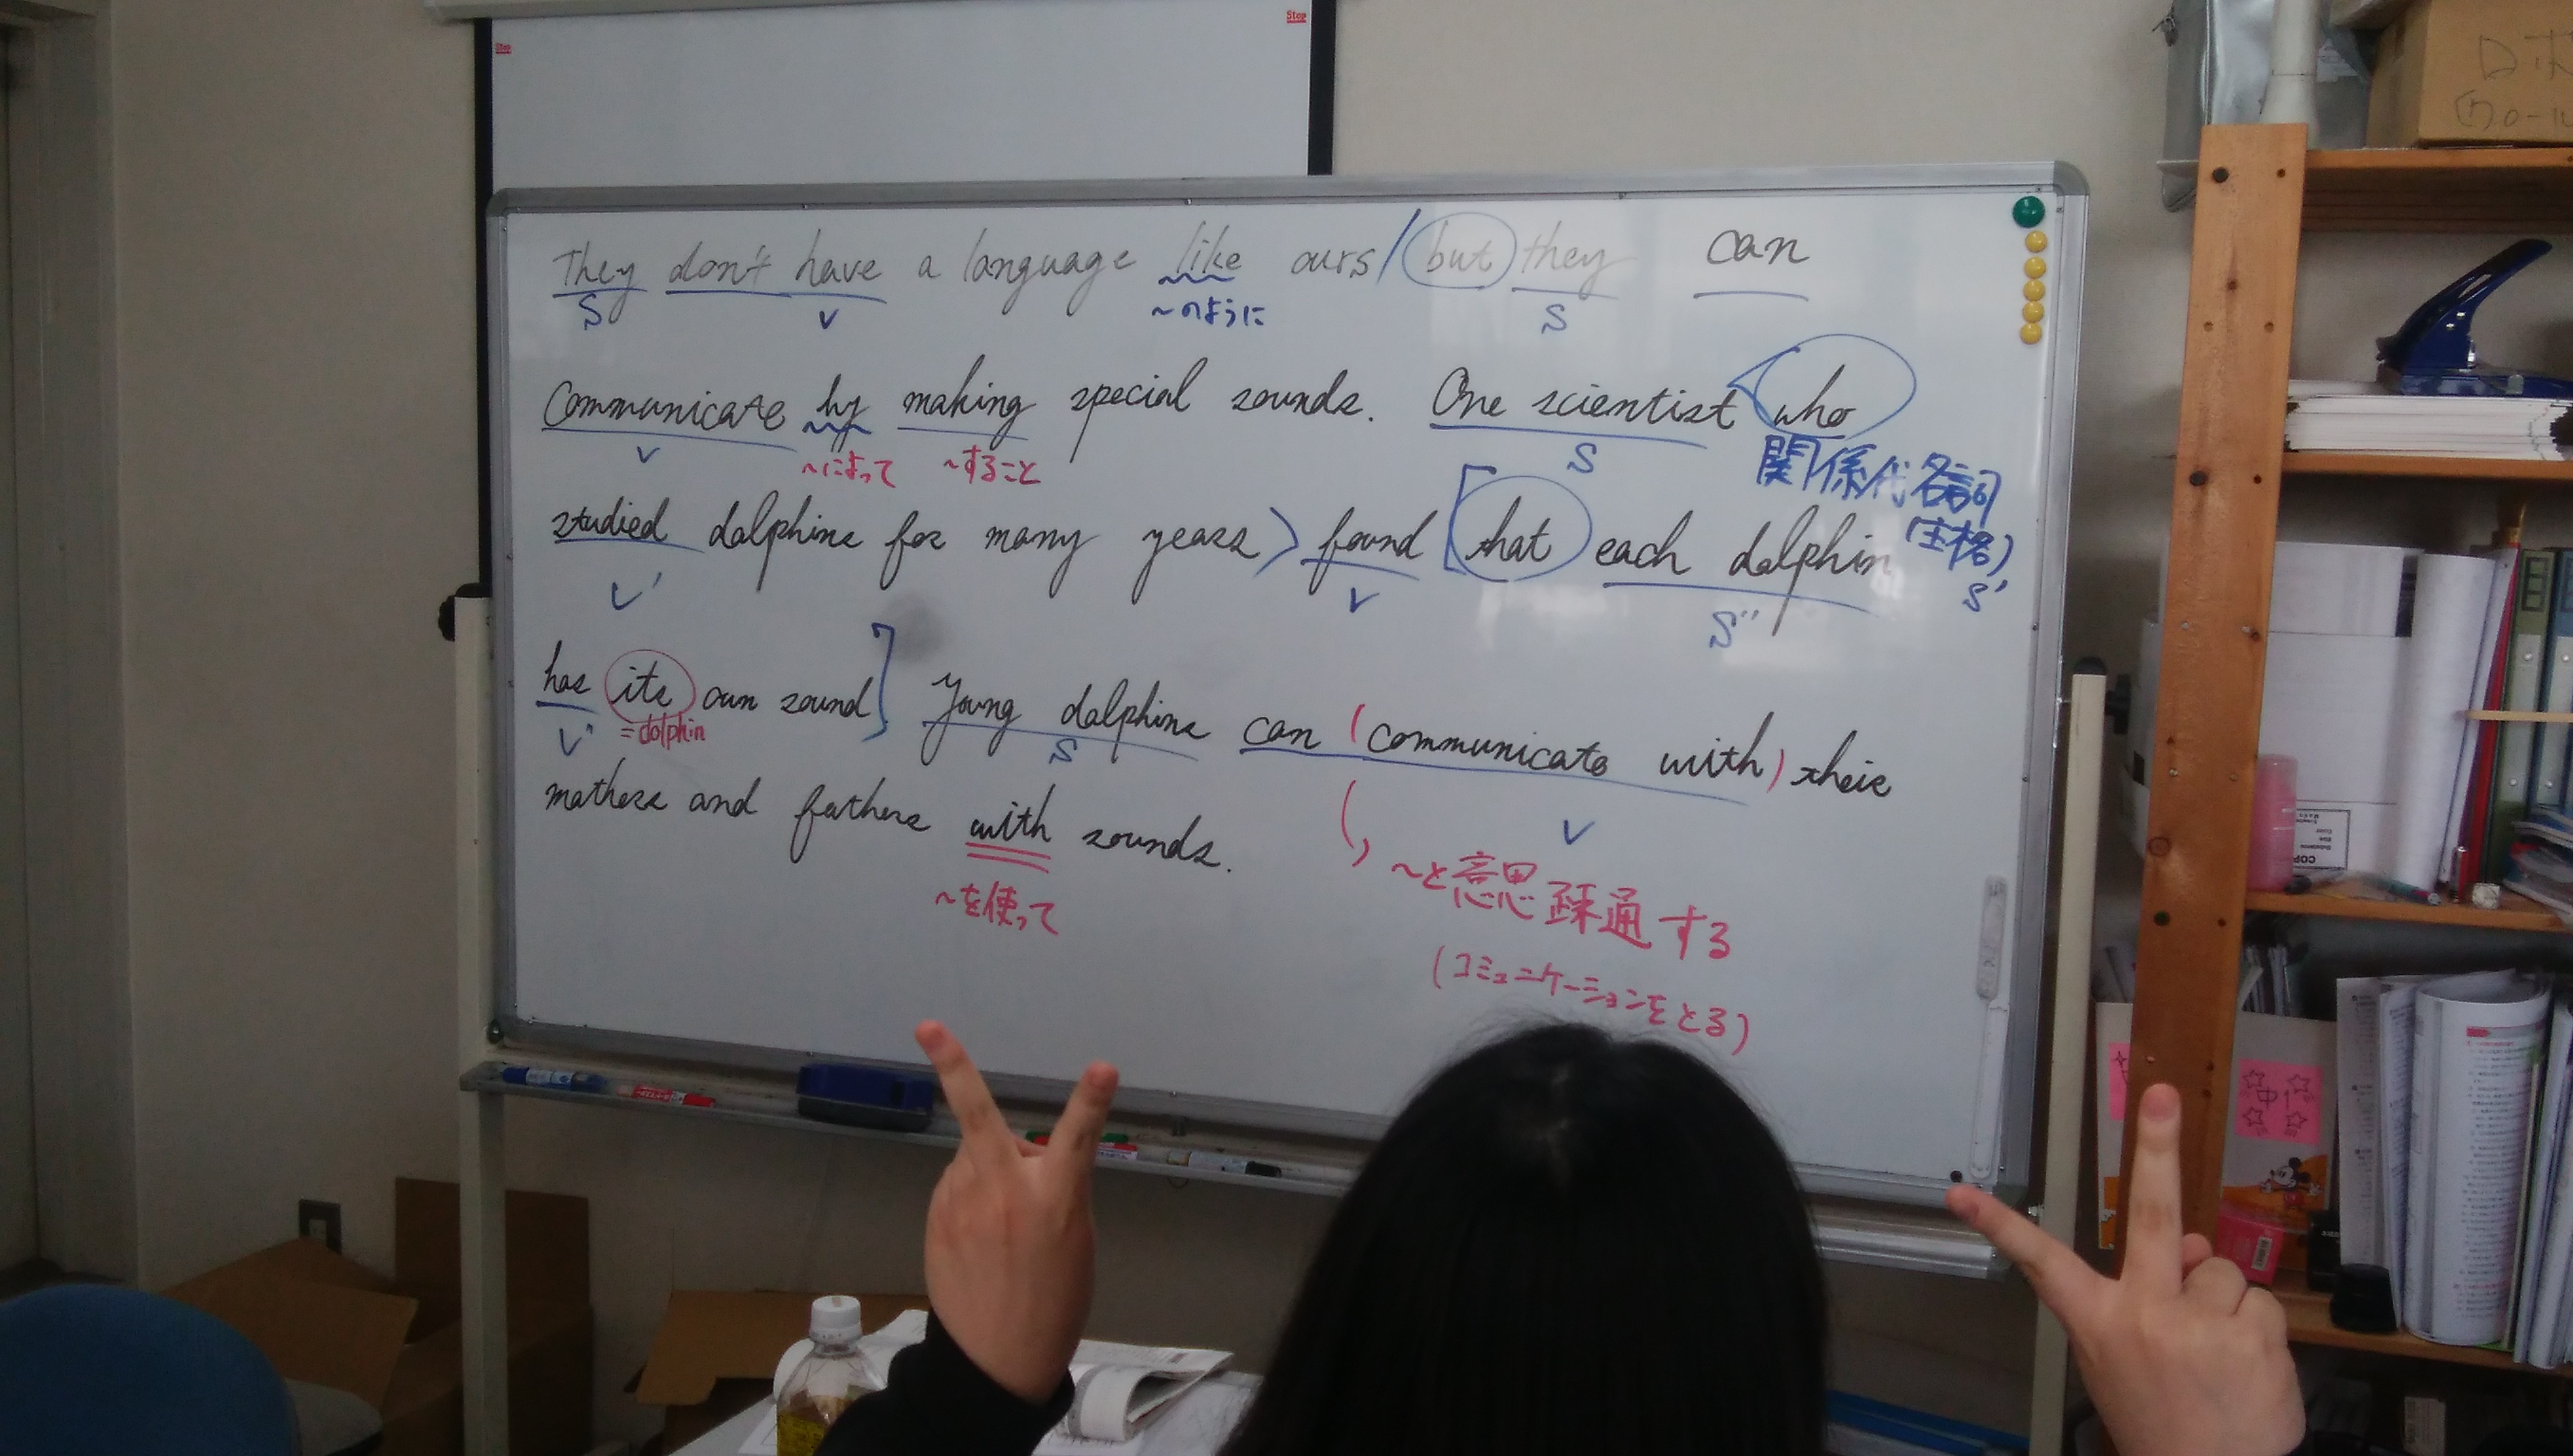 Stop
Stop
They don't have a language like ours / but they can
S V ~のように S
communicate by making special sounds. One scientist who
V ~によって ~すること S 関係代名詞
(主格)
S'
studied dolphins for many years > found [that each dolphin
V' V S''
has its own sound] Young dolphins can (communicate with) their
V'' =dolphin S V
mothers and fathers with sounds.
~を使って
~と意思疎通する
(コミュニケーションをとる)
中1